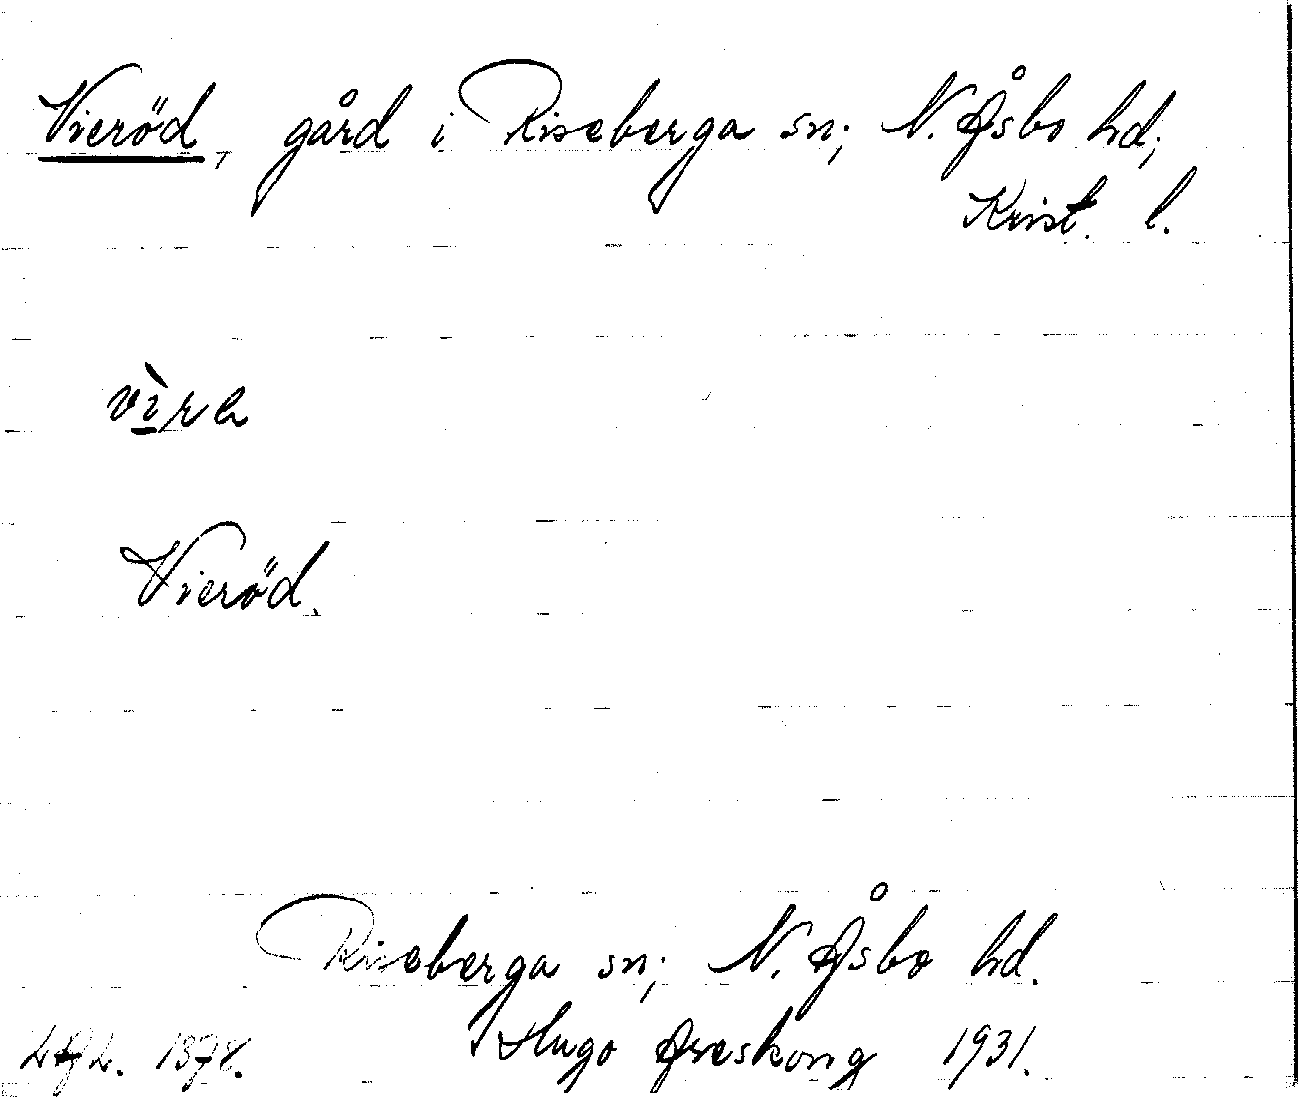 Vieröd, gård i Riseberga sn; N. Åsbo hd;
Krist. l.
Vieröd.
Riseberga sn; N. Åsbo hd.
Hugo Areskoug 1931.
LAL. 1378.